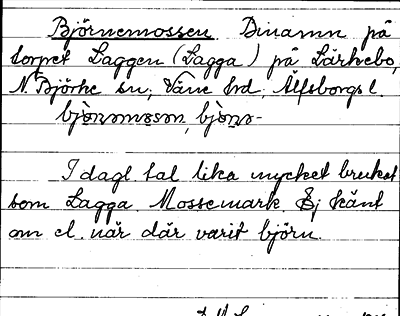 Björnemossen. Binamn på
torpet Laggen (Lagga) på Lärkebo,
N. Björke sn, Väne hd, Älfsborgs l.
bjònnmosən, bjòno-
I dagl tal lika mycket brukat
som Lagga Mossemark. Ej känt
om el. när där varit björn.